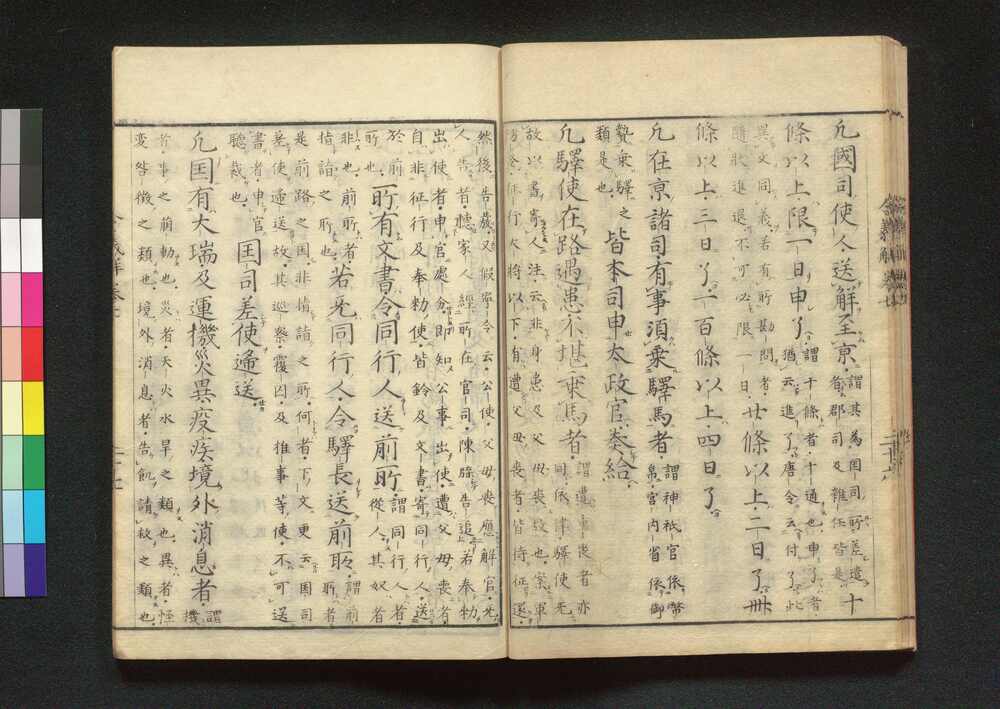 凡國司使人送解至京謂其為国司所差遣者郡司及雜任皆是十
條以上限一日申了謂十條者十通也申了者猶云進了唐令云付了此
異文同義若有所勘問者隨狀進退不可必限一日廿條以上二日了卌
條以上三日了一百條以上四日了
凡在京諸司有事須乗驛馬者謂神祇官依幣帛官内省依御
贄乗驛之類是也皆本司申太政官奏給
凡驛使在路遇患不堪乗馬者謂遭喪者亦同依律驛使
故以書寄人注云非身患及父母喪故也案軍
防令征行大將以下有遭父母喪者皆待征還
然後告發又假寧令云公使父母喪應解官无
人告者聴家人經所在官司陳牒告追若奉勅
出使者申官處分即知公事出使遭父母喪者
自非征行及奉勅使皆鈴及文書寄同行人送
於前所也所有文書令同行人送前所謂同行人者從人其奴者
非也前所者指詣之所也若无同行人令驛長送前所謂前所者
是前路之国非指詣之所何者下文更云国司
差使逓送故其巡察覆囚及推事等使不可送
書者申官聴裁也国司差使逓送
凡国有大瑞及軍機災異疫疾境外消息者謂機
者事之萠動也災者天火水旱之類也異者怪
変咎徴之類也境外消息者告飢請救之類也
令義解 巻七